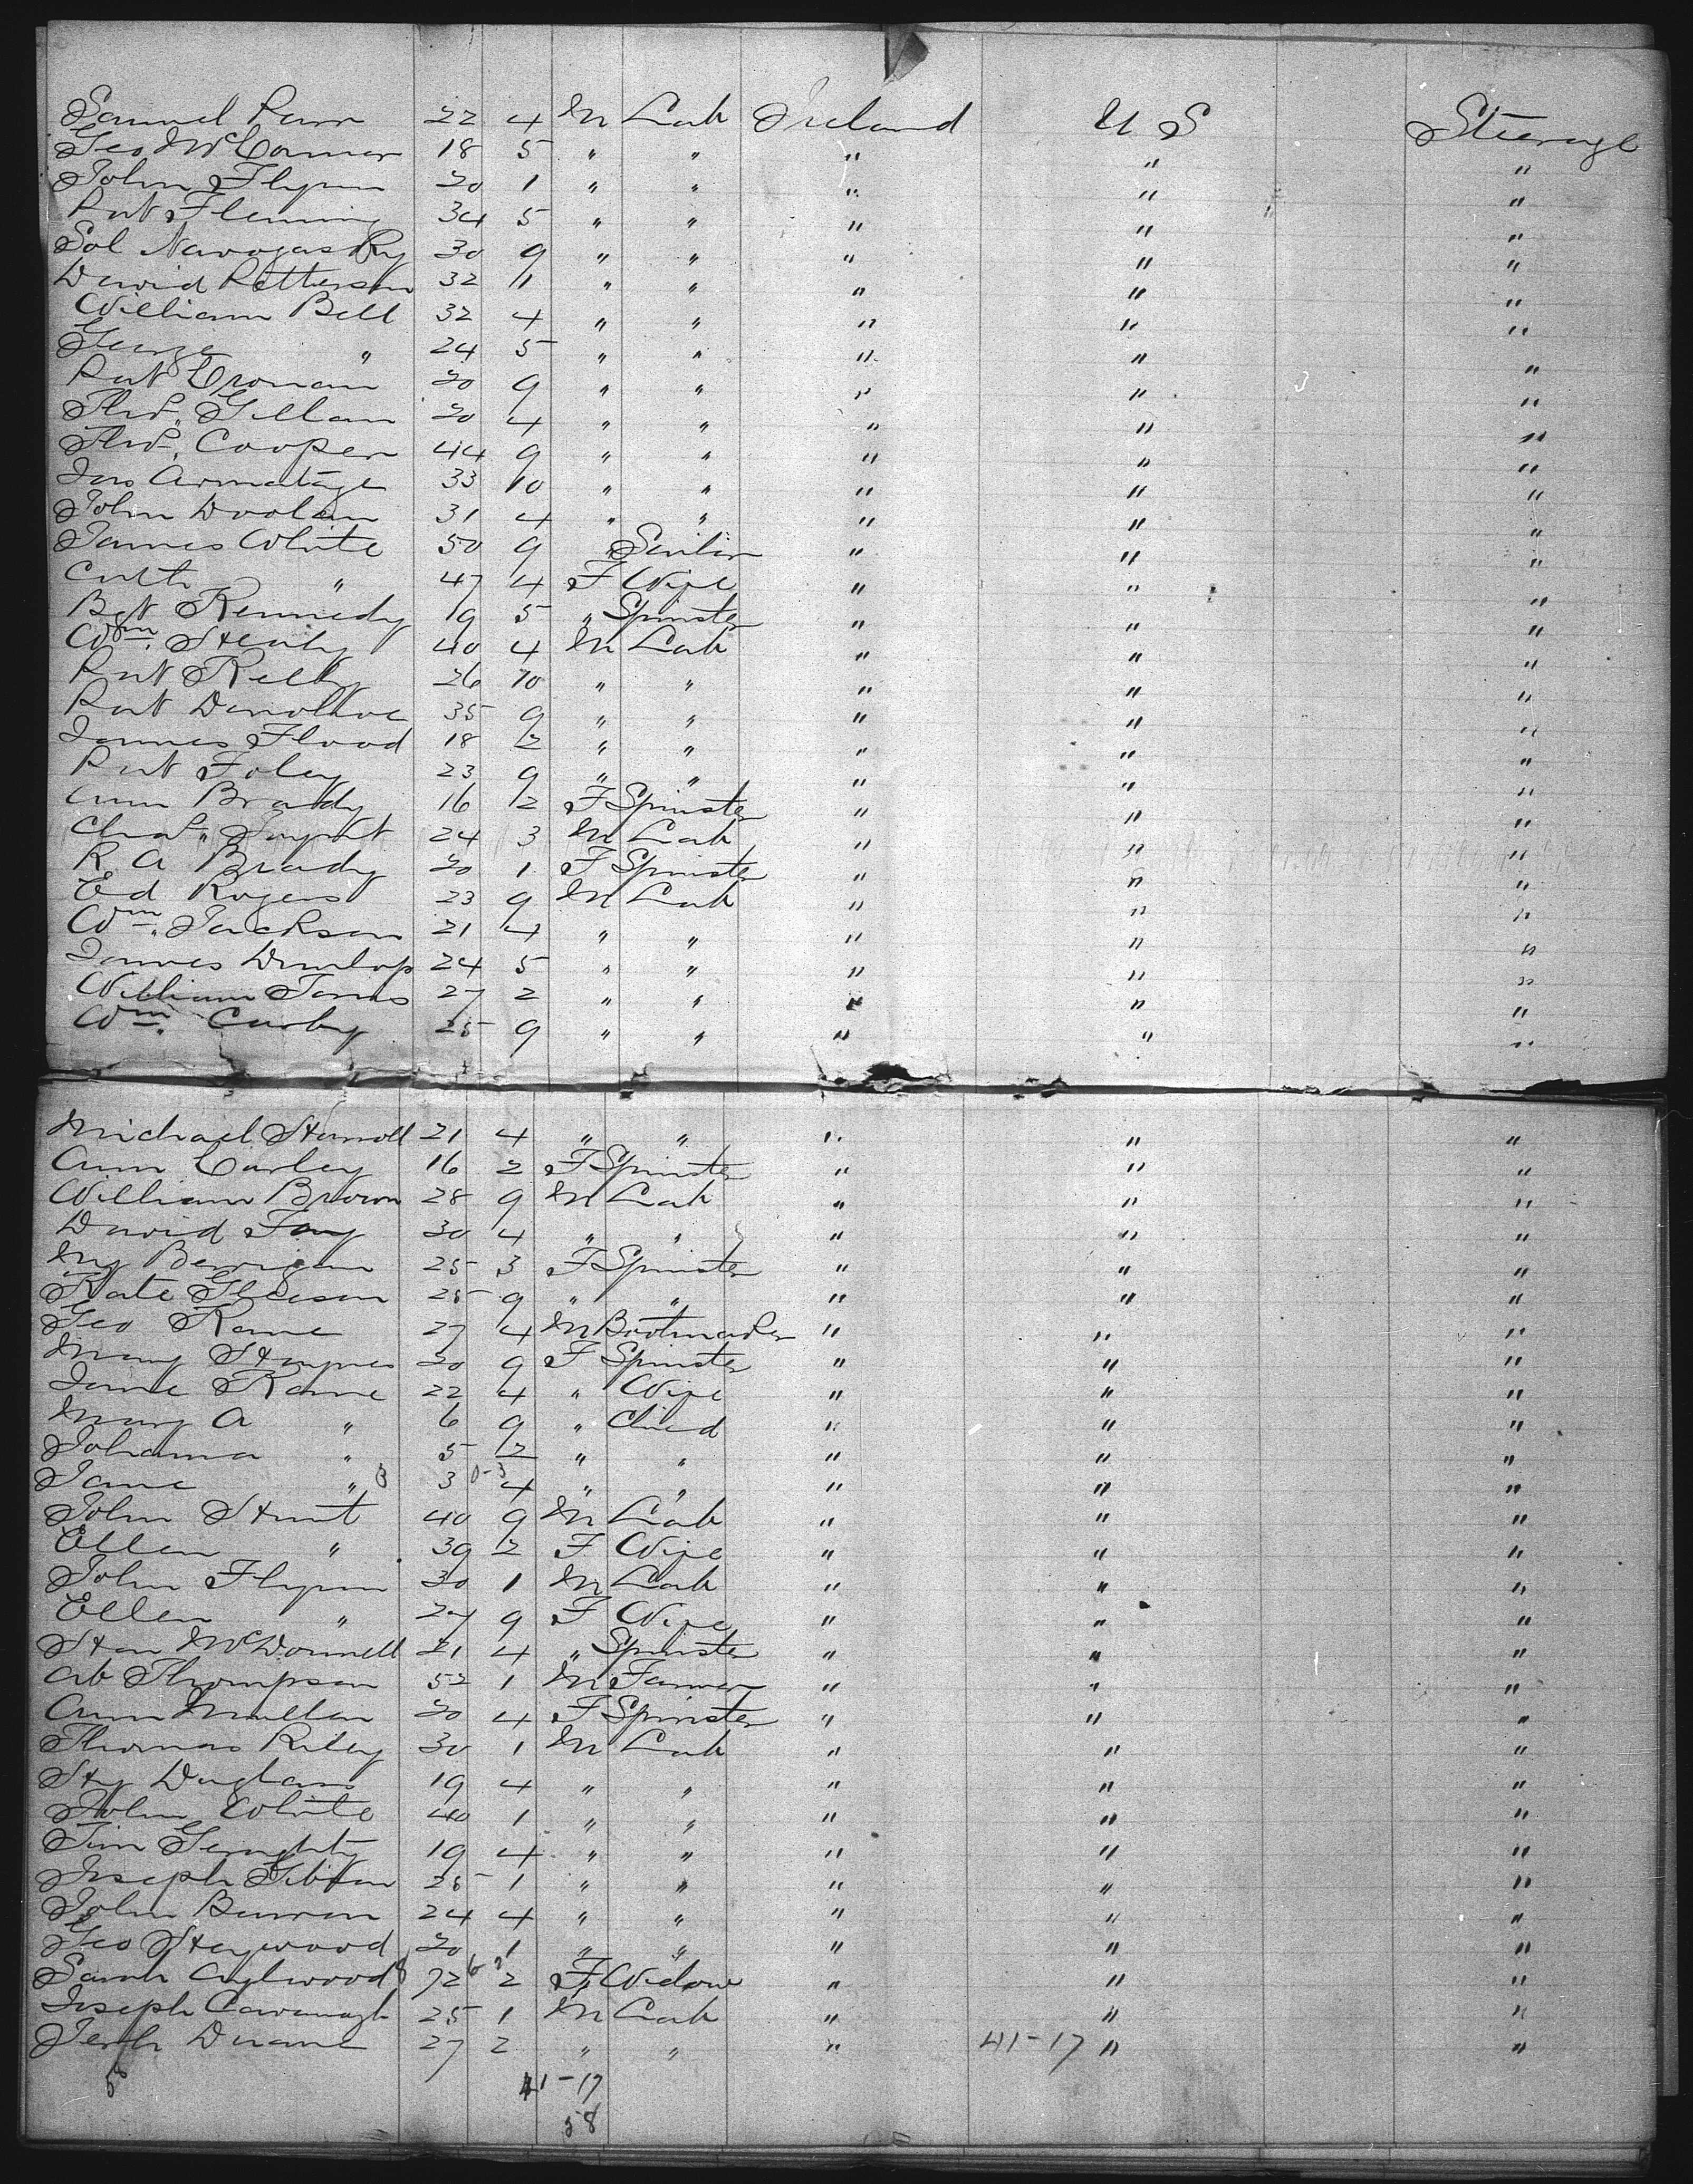 Samuel Parr 22 4 M Lab Ireland U S Steerage
Geo McConnor 18 5 " " " " "
John Flynn 20 1 " " " " "
Pat Fleming 34 5 " " " " "
Sol 30 9 " " " " "
David Patterson 32 11 " " " " "
William Bell 32 4 " " " " "
George " 24 5 " " " " "
Pat Cronan 20 9 " " " " "
Thos. Gillan 20 4 " " " " "
Thos. Cooper 44 9 " " " " "
Jas Armatage 33 10 " " " " "
John Doolan 31 4 " " " " "
James White 50 9 " " " "
Cath " 47 4 F Wife " " "
Bgt Kennedy 19 5 " Spinster " " "
Wm. Healy 40 4 M Lab " " "
Pat Kelly 26 10 " " " " "
Pat Donohoe 35 9 " " " " "
James Flood 18 2 " " " " "
Pat Foley 23 9 " " " " "
Ann Brady 16 2 F Spinster " " "
Chas. 24 3 M Lab " " "
R. A Brady 20 1 F Spinster " " "
Ed Rogers 23 9 M Lab " " "
Wm. Jackson 21 4 " " " " "
James Dunlop 24 5 " " " " "
William Jones 27 2 " " " " "
Wm. Curly 25 9 " " " " "
Michael 21 4 " " " " "
Ann Curley 16 2 F Spinster " " "
William Brown 28 9 M Lab " " "
David Fay 30 4 " " " " "
My Berrigan 25 3 F Spinster " " "
Kate Gleeson 25 9 " " " " "
Geo Kane 27 4 M Bootmaker " " "
Mary Haynes 20 9 F Spinster " " "
Jane Kane 22 4 " Wife " " "
Mary A " 6 9 " Child " " "
Johanna " 5 2 " " " " "
Jane " 3 3 0-3 4 " " " " "
John Hunt 40 9 M Lab " " "
Ellen " 39 2 F Wife " " "
John Flynn 30 1 M Lab " " "
Ellen " 27 9 F Wife " " "
Han McDonnell 21 4 " Spinster " " "
Ab Thompson 52 1 M Farmer " " "
Ann Mullen 20 4 F Spinster " " "
Thomas Riley 30 1 M Lab " " "
Hy Douglass 19 4 " " " " "
John White 40 1 " " " " "
Tim Geraghty 19 4 " " " " "
Joseph Gibson 25 1 " " " " "
John Barron 24 4 " " " " "
Geo Heywood 20 1 " " " " "
Sarah 72 2 F Widow " " "
Joseph Cavanagh 25 1 M Lab " " "
Jerh Duane 27 2 " " " 41-17 " "
58 41-17
58